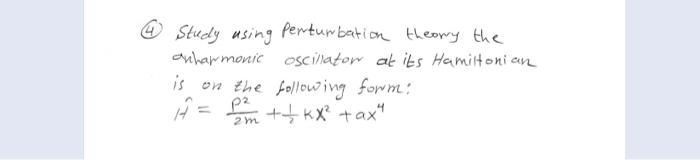 ④ Study using Perturbation theory the
anharmonic oscillator at its Hamiltonian
is on the following form:
Ĥ = p²/2m + 1/2 kx² + ax⁴